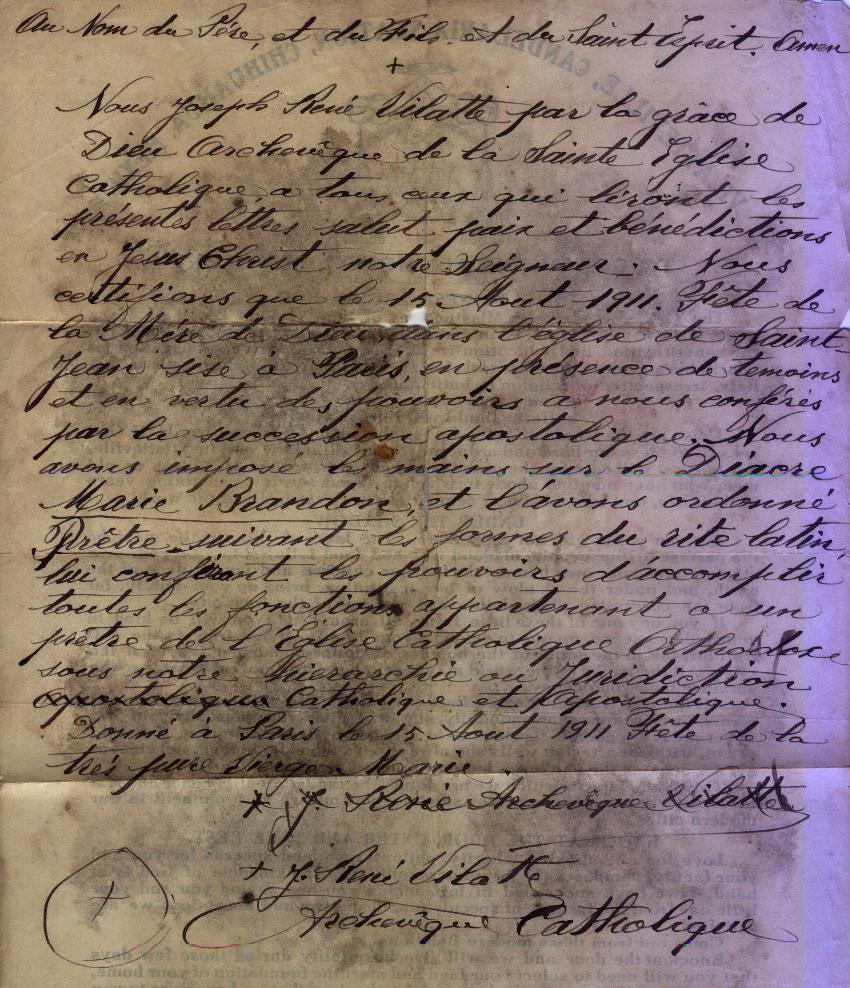 Au Nom du Père, et du Fils. et du Saint Esprit. Amen
+
Nous Joseph René Vilatte par la grâce de
Dieu Archevêque de la Sainte Eglise
Catholique, a tous ceux qui liront les
présentes lettres salut paix et bénédictions
en Jesus Christ notre Seigneur. Nous
certifions que le 15 Aout 1911. Fête de
la Mère de Dieu dans l'église de Saint-
Jean sise à Paris, en présence de temoins
et en vertu des pouvoirs a nous conférés
par la succession apostolique. Nous
avons imposé les mains sur le Diacre
Marie Brandon, et l'avons ordonné
Prêtre suivant les formes du rite latin,
lui conférant les pouvoirs d'accomplir
toutes les fonctions appartenant a un
prêtre de l'Église Catholique Orthodoxe
sous notre hierarchie ou Juridiction
apostolique Catholique et Apostolique.
Donné à Paris le 15 Aout 1911 Fête de la
très pure Vierge Marie.
+ J. René Archevêque Vilatte
+ J. René Vilatte
Archevêque Catholique
+